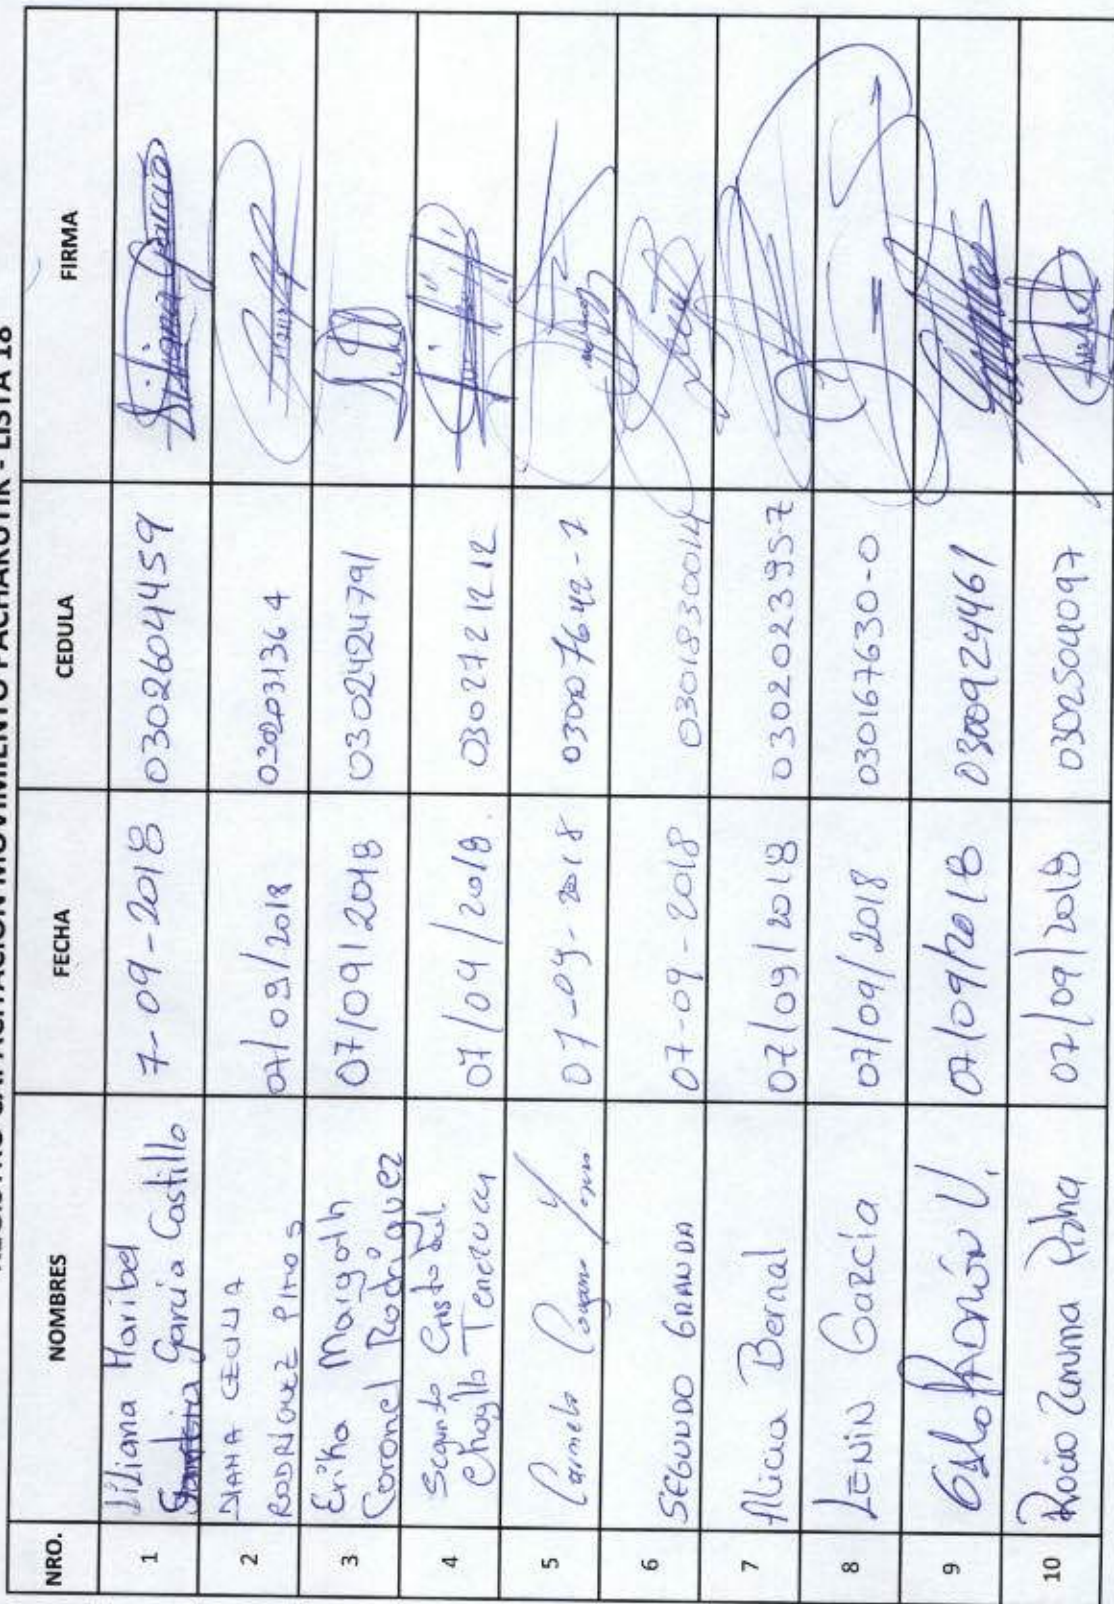 REGISTRO CAPACITACION MOVIMIENTO PACHAKUTIK - LISTA 18
NRO. NOMBRES FECHA CEDULA FIRMA
1 Liliana Maribel
Garcia Castillo 7-09-2018 0302604459 Liliana Garcia
2
RODRIGUEZ PINOS 07/09/2018 0302031364
3 Erika Margoth
Coronel Rodriguez 07/09/2018 0302424791
4 Segundo Cristobal
Chogllo Tenezuca 07/09/2018. 030271212
5 Carmela 07-09-2018 03007642-1
6 SEGUNDO GRANDA 07-09-2018 0301830014
7 Alicia Bernal 07/09/2018 030202395-7
8 LENIN García 07/09/2018 030167630-0
9 GALO PADRÓN V. 07/09/2018 0300924461
10 Rocio Zumma 07/09/2018 0302504097